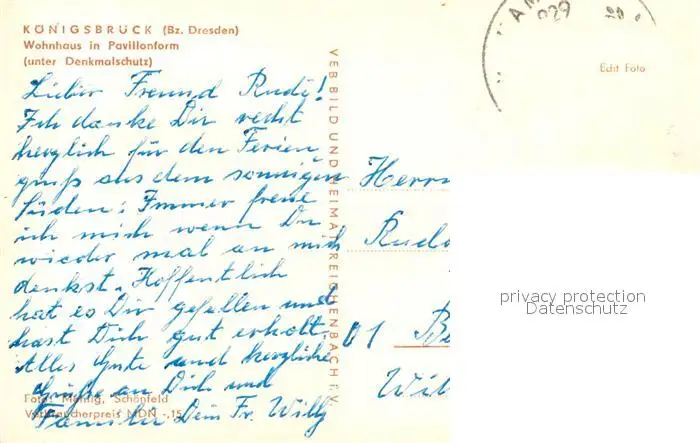 KÖNIGSBRÜCK (Bz. Dresden)
Wohnhaus in Pavillonform
(unter Denkmalschutz)
Lieber Freund Rudi!
Ich danke Dir recht
herzlich für den Ferien
gruß aus dem sonnigen
Süden. Immer freue
ich mich wenn Du
wieder mal an mich
denkst. Hoffentlich
hat es Dir gefallen und
hast Dich gut erholt.
Alles Gute und herzliche
Grüße an Dich und
Familie Dein Fr. Willy
Foto: Schönfeld
Verbraucherpreis MDN -,15
VEB BILD UND HEIMAT REICHENBACH I. V.
929
20
Echt Foto
Herrn
Rudo
01 Be
Wil
privacy protection
Datenschutz